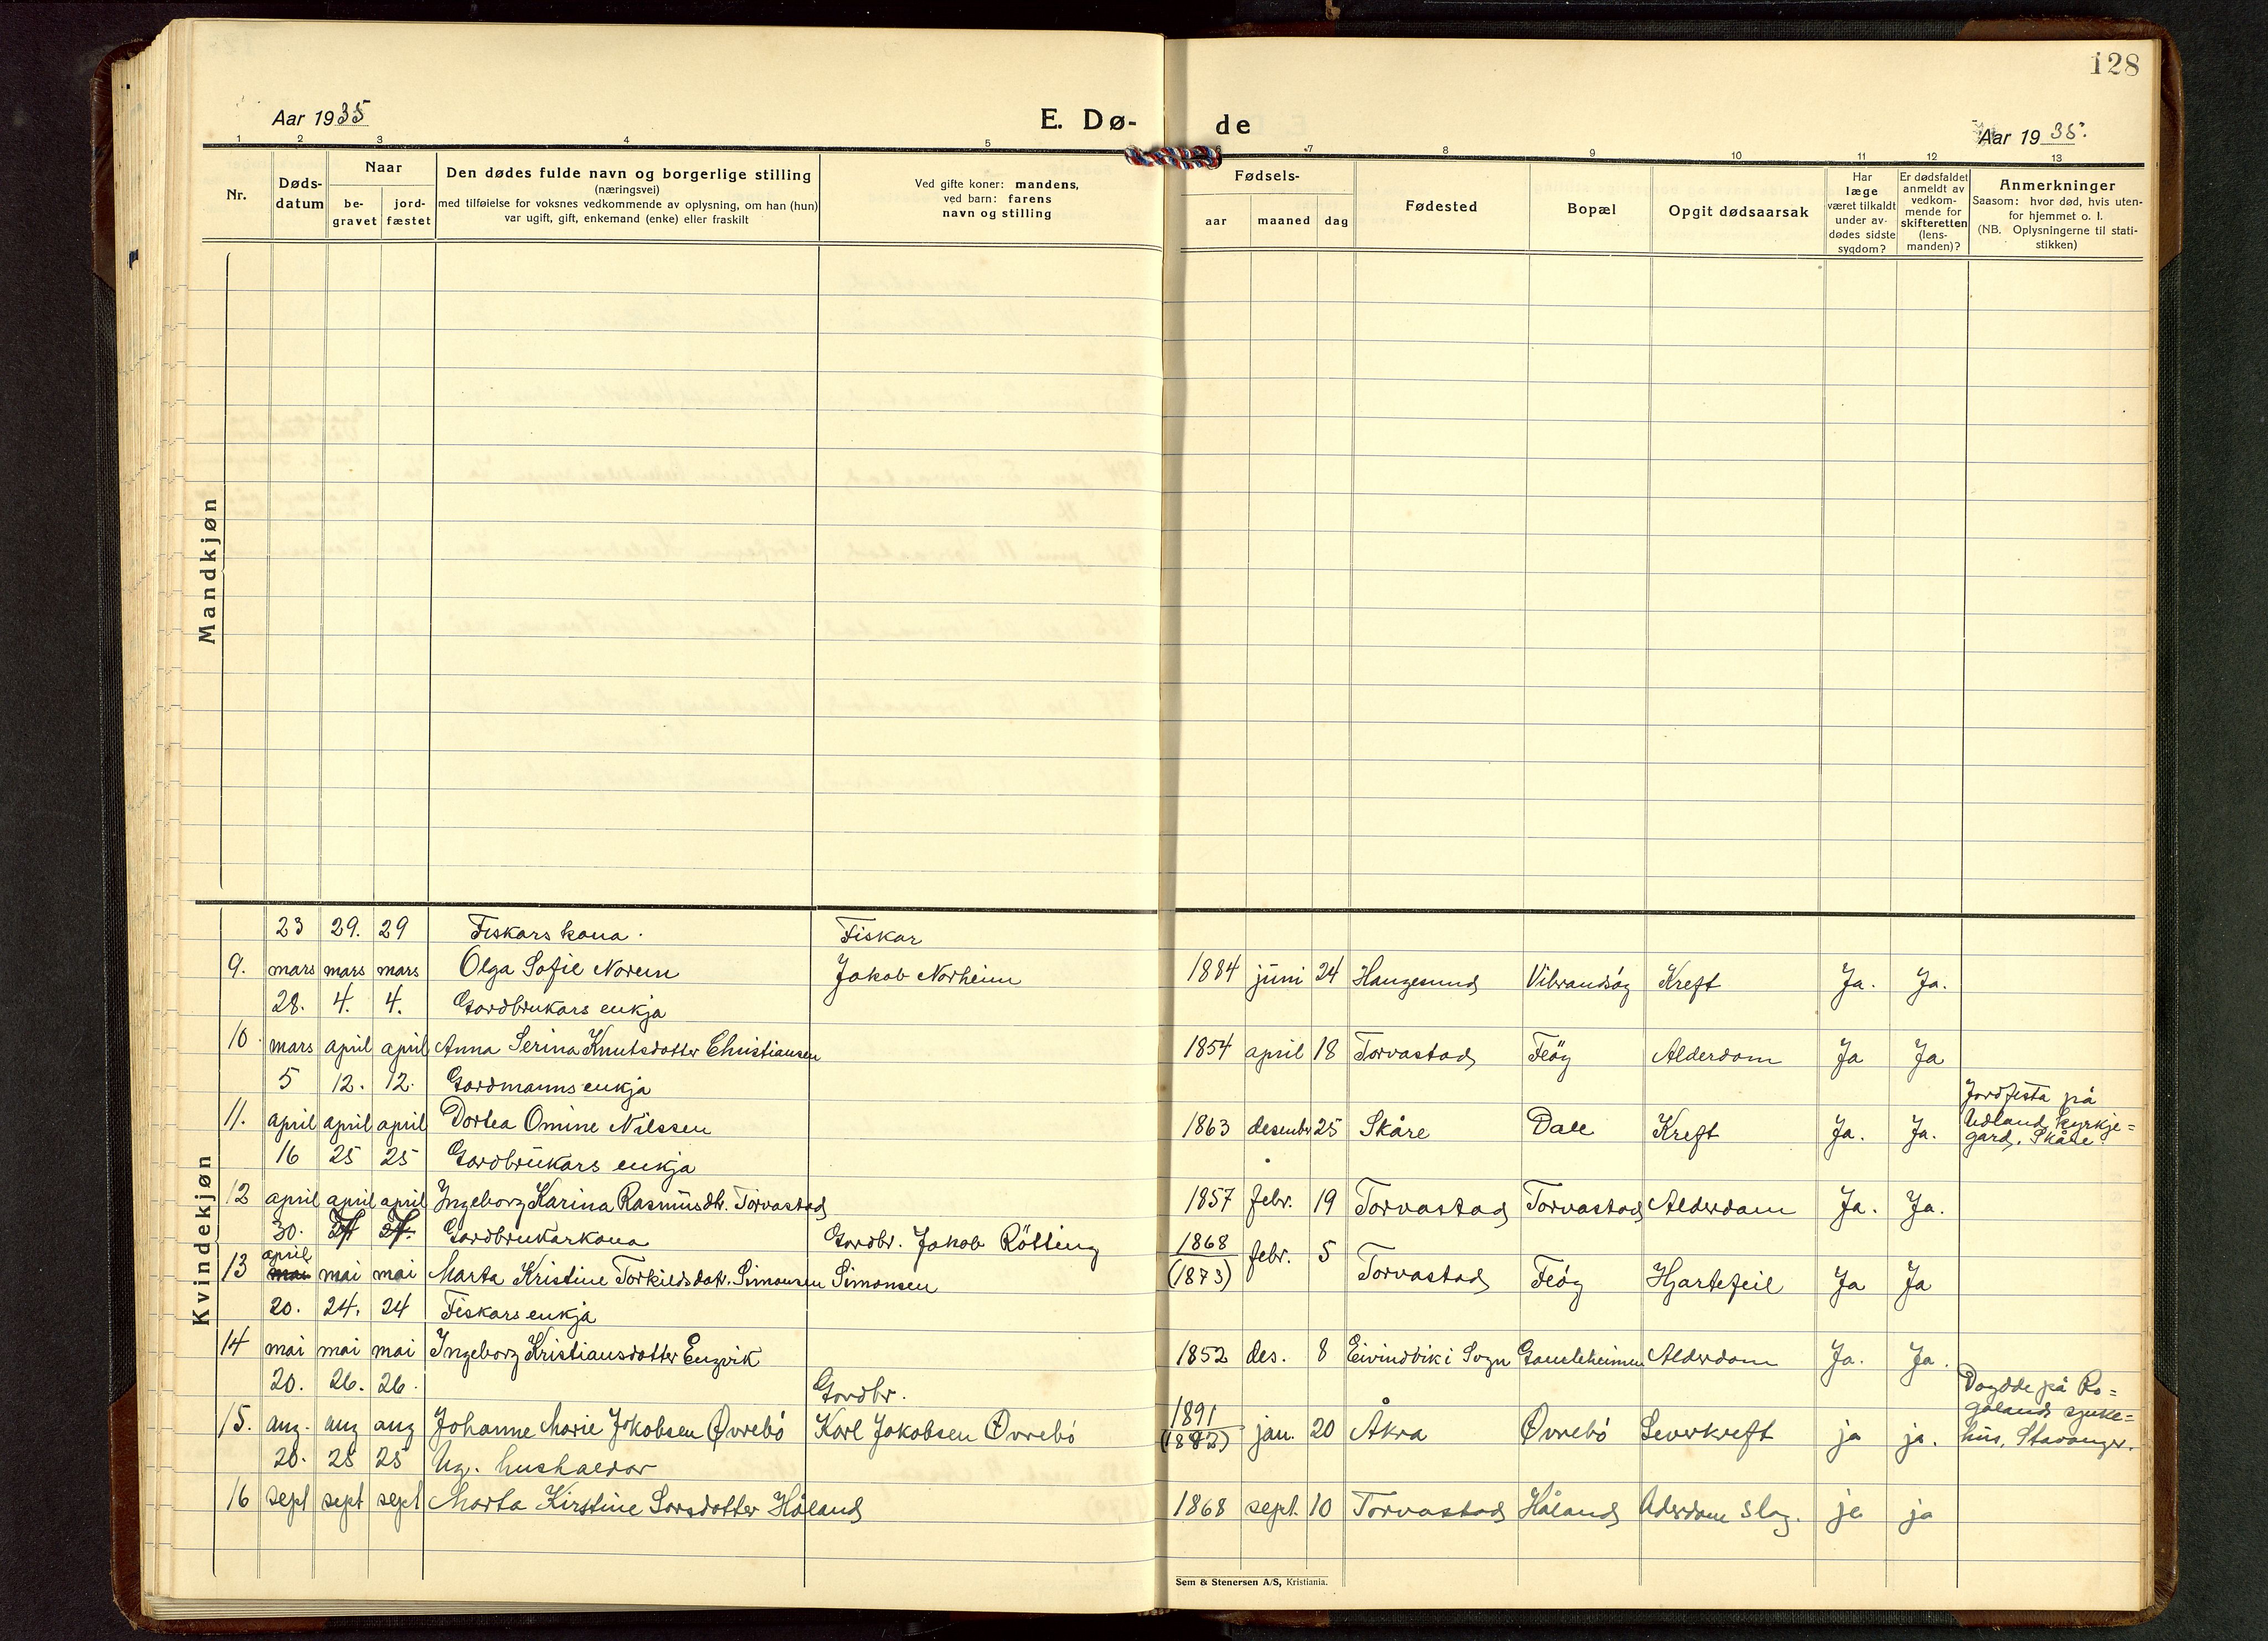 128
Aar 1935
E. Dø-
de
Aar 1935.
1 2 3 4 5 6 7 8 9 10 11 12 13
Nr.
Døds-
datum
Naar
be-
gravet
jord-
fæstet
Den dødes fulde navn og borgerlige stilling
(næringsvei)
med tilføielse for voksnes vedkommende av oplysning, om han (hun)
var ugift, gift, enkemand (enke) eller fraskilt
Ved gifte koner: mandens,
ved barn: farens
navn og stilling
Fødsels-
aar
maaned
dag
Fødested
Bopæl
Opgit dødsaarsak
Har
læge
været tilkaldt
under av-
dødes sidste
sygdom?
Er dødsfaldet
anmeldt av
vedkom-
mende for
skifteretten
(lens-
manden)?
Anmerkninger
Saasom: hvor død, hvis uten-
for hjemmet o. l.
(NB. Oplysningerne til stati-
stikken)
Mandkjøn
Kvindekjøn
23 29. 29 Fiskars kona. Fiskar
9. mars mars mars Olga Sofie Norem Jakob Norheim 1884 juni 24 Haugesund Vibrandsöy Kreft Ja. Ja.
28. 4. 4. Gardbrukars enkja
10. mars april april Anna Serina Knutsdotter Christiansen 1854 april 18 Torvastad Feöy Alderdom Ja Ja
5 12. 12. Gardmanns enkja
11. april april april Dortea Omine Nilssen 1863 desembr 25 Skåre Dale Kreft Ja. Ja.
Jordfesta på
Udland kyrkje=
gard, Skåre
16 25 25 Gardbrukars enkja
12 april april april Ingeborg Karina Rasmusdtr. Torvastad 1857 febr. 19 Torvastad Torvastad Alderdom Ja. Ja.
30. Gardbrukarkona Gardbr. Jakob Rötting
13 april mai mai mai Marta Kristine Torkieldsdotr. Simonsen Simonsen 1868 (1873) febr. 5 Torvastad Feöy Hjartefeil Ja Ja
20. 24. 24 Fiskars enkja
14 mai mai mai Ingeborg Kristiansdotter Engvik 1852 des. 8 Eivindvik i Sogn Gauleheimen Alderdom Ja. Ja.
20. 26. 26. Gardbr.
15. aug. aug aug Johanne Marie Jakobsen Øvrebö Karl Jakobsen Øvrebö 1891 (1882) jan. 20 Åkra Øvrebö Leverkreft ja ja.
Döydde på Ro=
galands sjuke=
hus, Stavanger.
20. 25 25 Ug. hushaldar
16 sept sept sept Marta Kirstine Larsdotter Håland 1868 sept. 10 Torvastad Håland Aderdom slag. ja ja
Sem & Stenersen A/S, Kristiania.